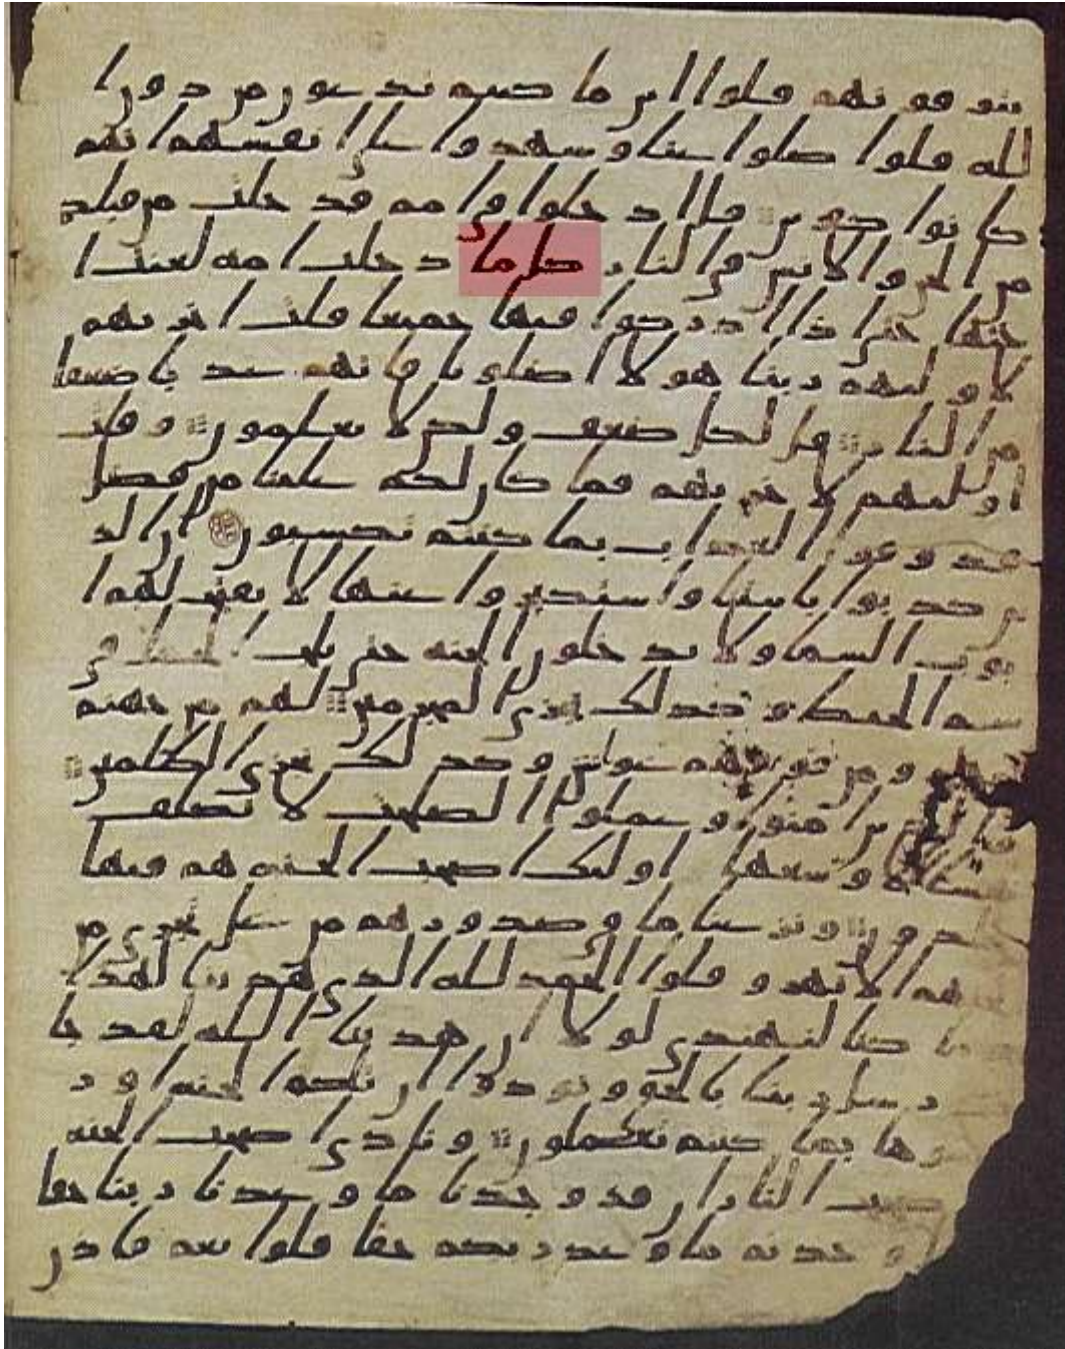 يتوفونهم قلوا اين ما كنتم تدعون من دون ا
لله قلوا ضلوا عنا وشهدوا على انفسهم انهم
كانوا كفرين قل ادخلوا في امم قد خلت من قبلكم
من الجن والانس في النار كل ما دخلت امه لعنت ا
ختها حتى اذا اداركوا فيها جميعا قلت اخريهم
لاوليهم ربنا هولا اضلونا فاتهم عذبا ضعفا
من النار قل لكل ضعف ولكن لا تعلمون وقلت
اوليهم لاخريهم فما كان لكم علينا من فضل
فذوقوا العذاب بما كنتم تكسبون ان الذ
ين كذبوا بايتنا واستكبروا عنها لا تفتح لهم ا
بوب السما ولا يدخلون الجنه حتى يلج الجمل في
سم الخياط وكذلك نجزي المجرمين لهم من جهنم
ومن فوقهم غواش وكذلك نجزي الظلمين
والذين امنوا وعملوا الصلحت لا نكلف
نفسا الا وسعها اوليك اصحب الجنه هم فيها
خلدون ونزعنا ما في صدورهم من غل تجري من
تحتهم الانهر وقلوا الحمد لله الذي هدينا لهذا
ما كنا لنهتدي لولا ان هدينا الله لقد جا
رسل ربنا بالحق ونودوا ان تلكم الجنه اور
ثتموها بما كنتم تعملون ونادى اصحب الجنه
اصحب النار ان قد وجدنا ما وعدنا ربنا حقا
وجدتم ما وعد ربكم حقا قلوا نعم فاذن